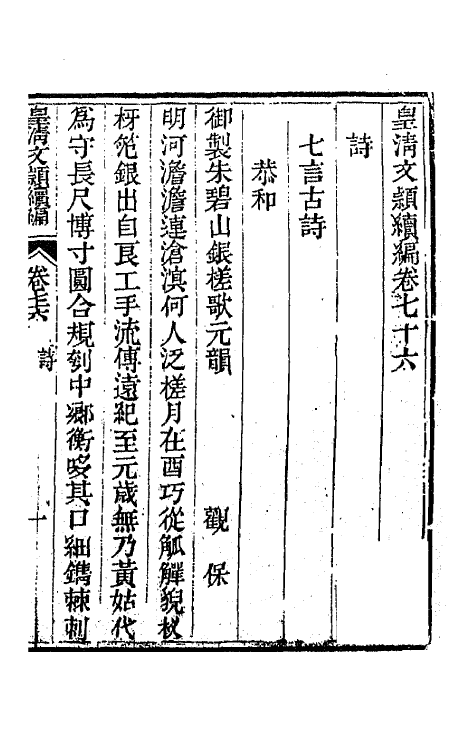 皇淸文頴續編卷七十六
詩
七言古詩
恭和
御製朱碧山銀槎歌元韻　觀保
明河澹澹連滄溟何人泛槎月在酉巧從觚觶貌杈
枒笵銀出自良工手流傳遠紀至元歲無乃黃姑代
爲守長尺博寸圓合規刳中鄉衡哆其口細鐫棘刺
皇淸文頴續編
卷七十六
詩
一